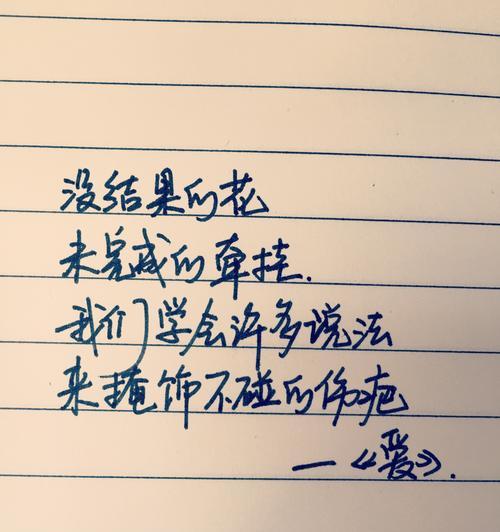 没结果的花
未完成的牵挂.
我们学会许多说法
来掩饰不碰的伤疤
—《爱》.